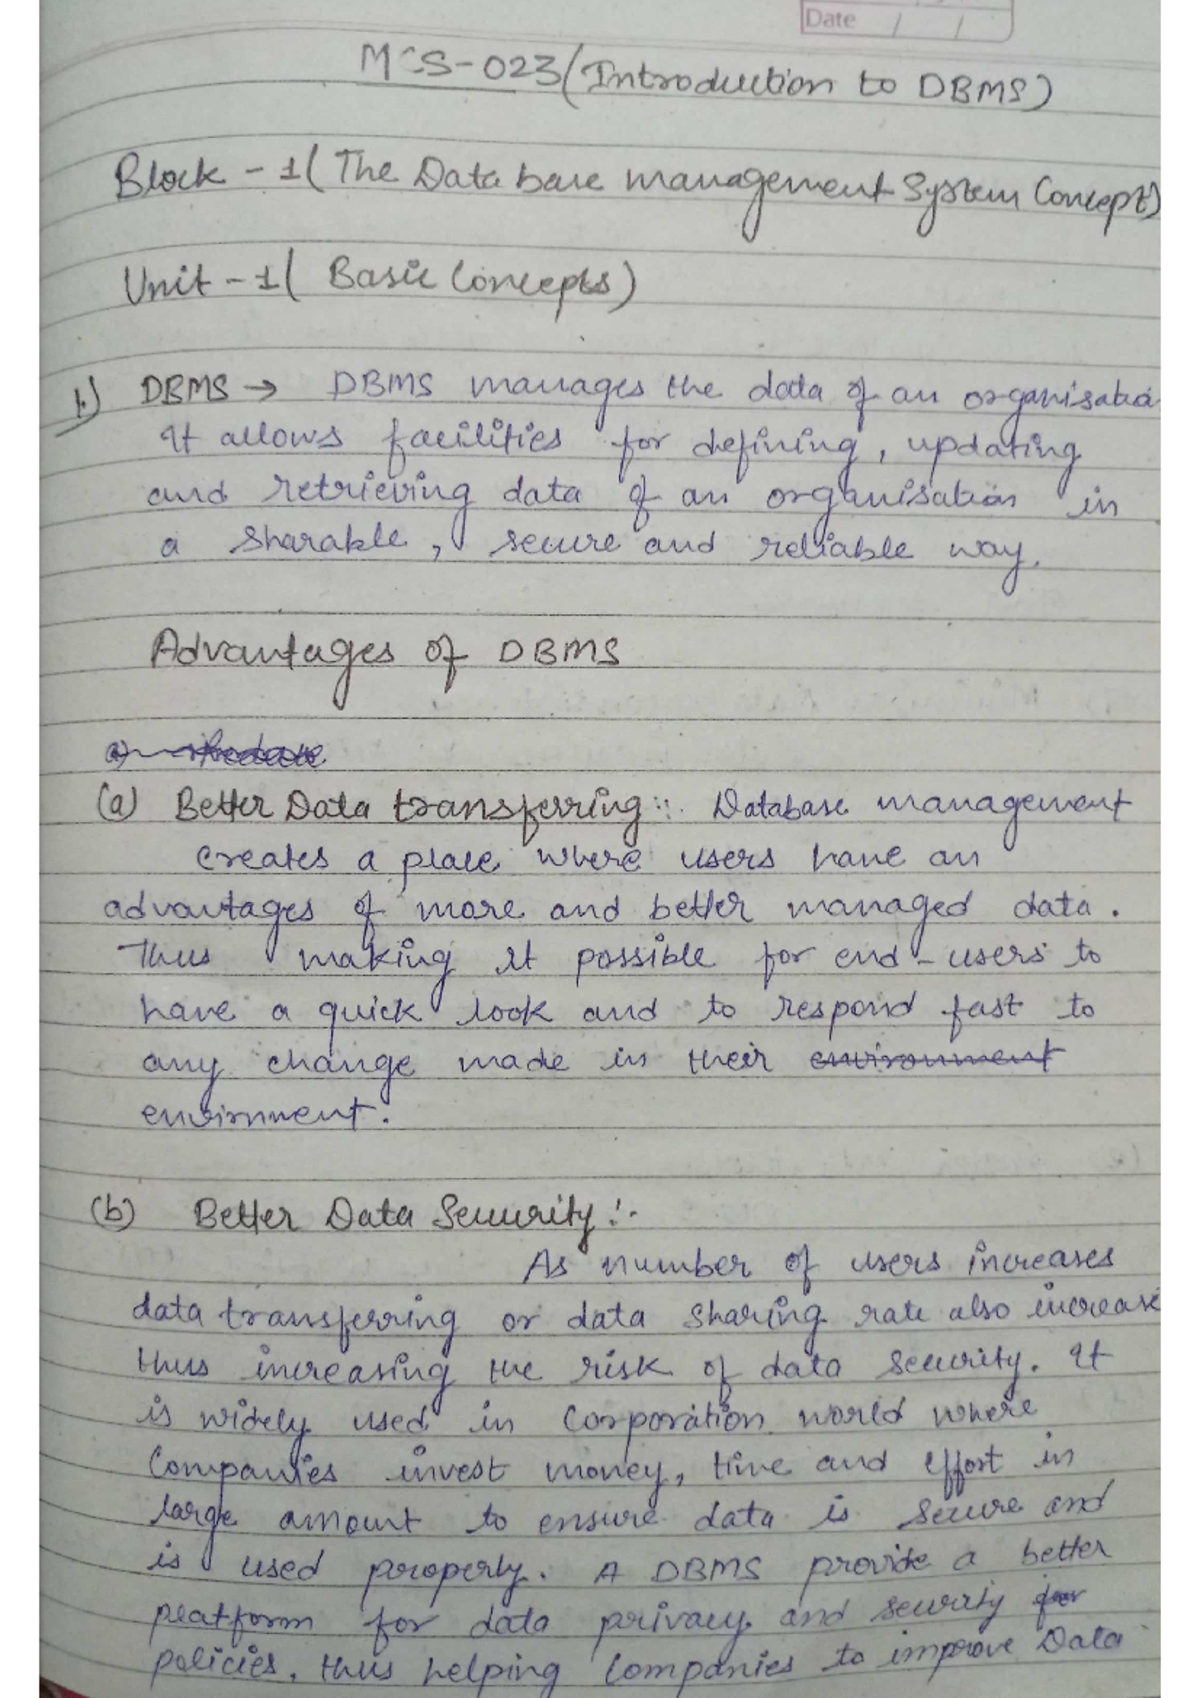 Date / /
MCS-023 (Introduction to DBMS)
Block - 1 (The Data base management System Concept)
Unit - 1 ( Basic Concepts)
1.) DBMS → DBMS manages the data of an organisatio
It allows facilities for defining, updating
and retrieving data of an organisation in
a sharable, secure and reliable way.
Advantages of DBMS
(a) Better Data transferring:: Database management
creates a place where users have an
advantages of more and better managed data.
Thus making it possible for end-users to
have a quick look and to respond fast to
any change made in their environment
envirnment.
(b) Better Data Security:-
As number of users increases
data transferring or data sharing rate also increase
thus increasing the risk of data security. It
is widely used in corporation world where
Companies invest money, time and effort in
large amount to ensure data is secure and
is used properly. A DBMS provide a better
platform for data privacy and security for
policies. thus helping Companies to improve Data